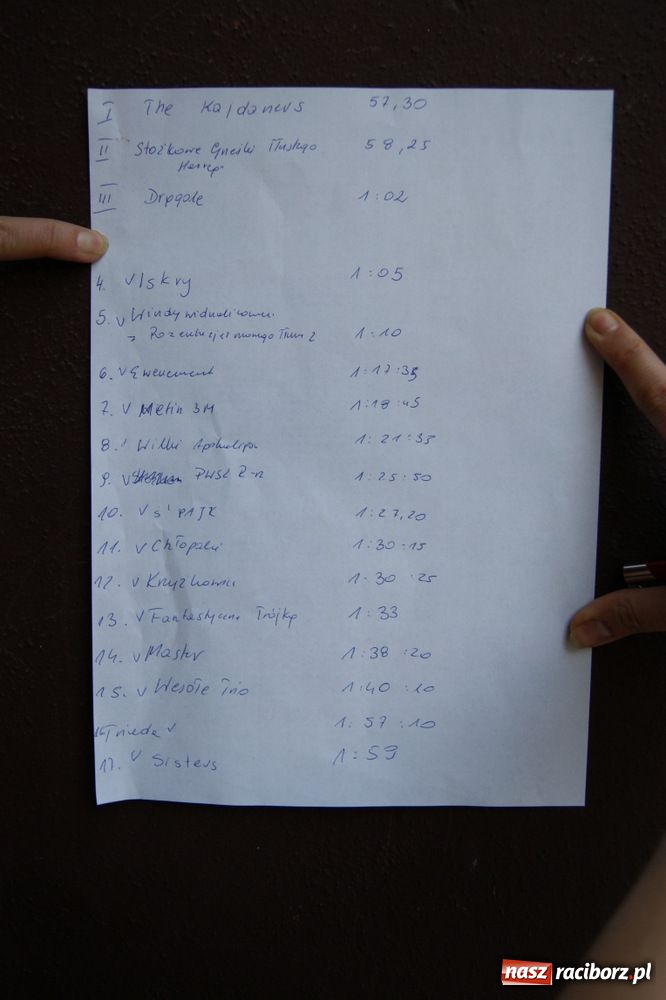 I The Kajdaners 57,30
II Stożkowe 58,25
III Drągale 1:02
4. v Iskry 1:05
5. v
1:10
6. v Ewenement 1:17:35
7. v Metin 3M 1:18:45
8. Wilki 1:21:33
9. v PWSZ 1:25:50
10. v 1:27,20
11. v Chłopaki 1:30:15
12. v 1:30:25
13. v Fantastyczna Trójka 1:33
14. v Master 1:38:20
15. v Wesołe Trio 1:40:10
16. v 1:57:10
17. v Sisters 1:59
nasz raciborz.pl